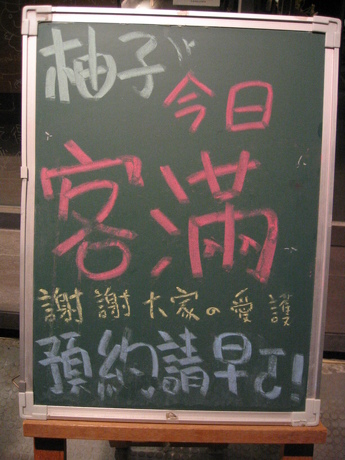 柚子
今日
客滿
謝謝大家の愛護
預約請早!